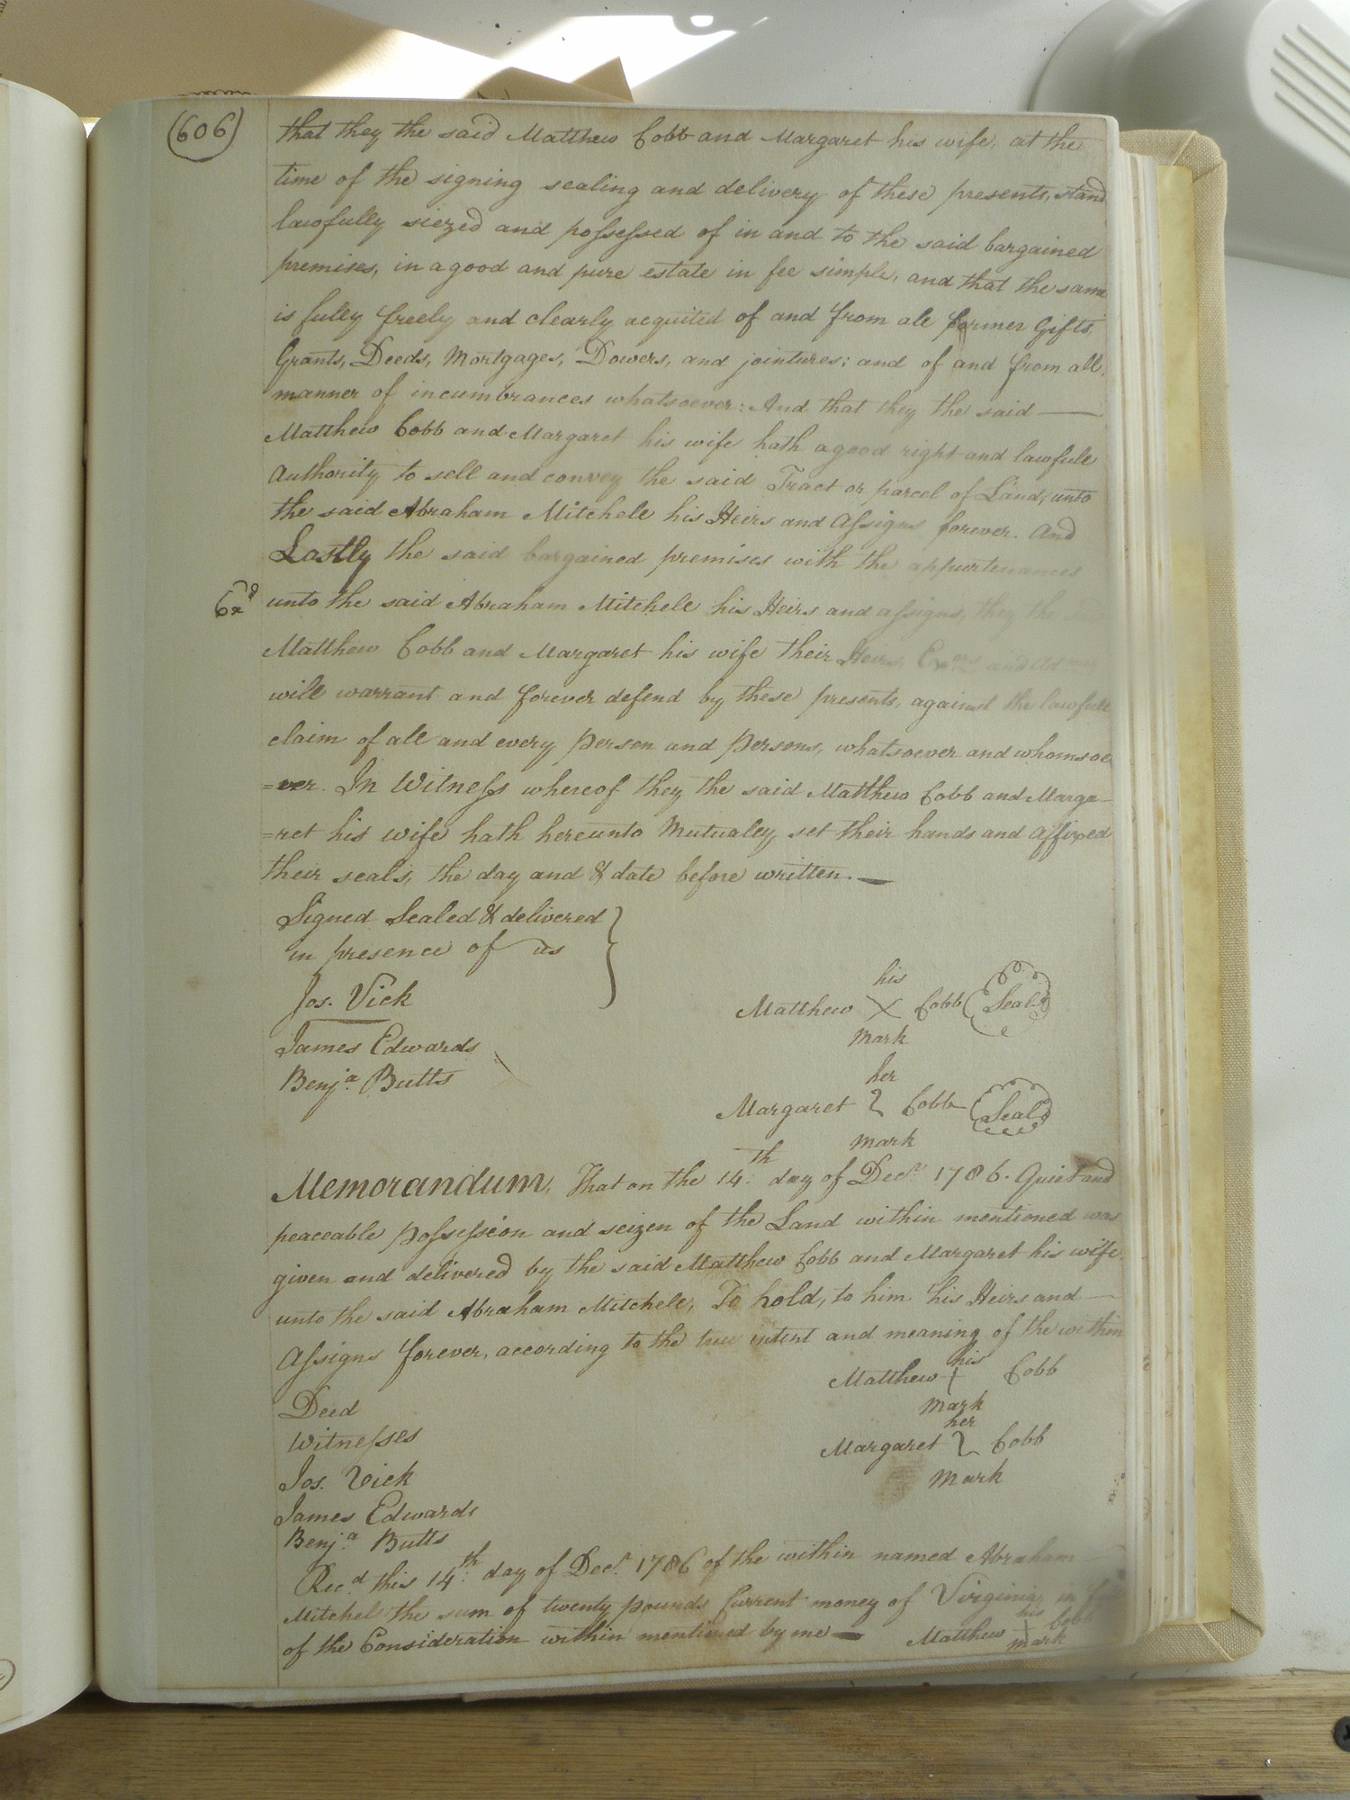 (606)
that they the said Matthew Cobb and Margaret his wife, at the
time of the signing sealing and delivery of these presents, stand
lawfully siezed and possessed of in and to the said bargained
premises, in a good and pure estate in fee simple, and that the same
is fully freely and clearly acquited of and from all former Gifts,
Grants, Deeds, Mortgages, Dowers, and jointures; and of and from all,
manner of incumbrances whatsoever: And that they the said —
Matthew Cobb and Margaret his wife hath a good right and lawfull
Authority to sell and convey the said Tract or parcel of Land, unto
the said Abraham Mitchell his Heirs and Assigns forever. And
Lastly the said bargained premises with the appurtenances
unto the said Abraham Mitchell his Heirs and assigns, they the
Matthew Cobb and Margaret his wife their Heirs, Exors and Admrs
will warrant and forever defend by these presents, against the lawfull
claim of all and every person and persons, whatsoever and whomsoe
=ver. In Witness whereof they the said Matthew Cobb and Marga-
=ret his wife hath hereunto Mutualey set their hands and affixed
their seals, the day and & date before written. —
Signed Sealed & delivered
in presence of us
Jos. Vick
James Edwards
Benja. Butts
his
Matthew X Cobb (Seal)
mark
her
Margaret 2 Cobb (Seal)
mark
Memorandum, That on the 14th day of Decr. 1786. Quiet and
peaceable possession and seizen of the Land within mentioned was
given and delivered by the said Matthew Cobb and Margaret his wife
unto the said Abraham Mitchell, To hold, to him his Heirs and —
Assigns forever, according to the true intent and meaning of the within
Deed
his
Matthew + Cobb
mark
her
Margaret 2 Cobb
mark
Witnesses
Jos. Vick
James Edwards
Benja. Butts
Recd. this 14th day of Decr. 1786 of the within named Abraham
Mitchel the sum of twenty pounds Current money of Virginia, in
of the Consideration within mentioned by me —
his
Matthew X Cobb
mark